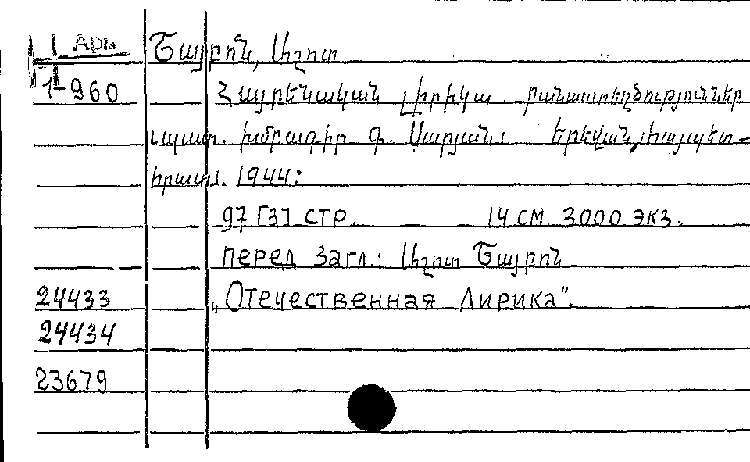 Арм Ծայրոն, Աշոտ
1-960 Հայրենական լիրիկա բանաստեղծություններ
պատ. խմբագիր Գ. Սարյան: Երեվան, Հայպետ-
հրատ. 1944:
97 [3] стр. 14 см. 3000 экз.
перед загл.: Աշոտ Ծայրոն
24433 „Отечественная лирика".
24434
23679